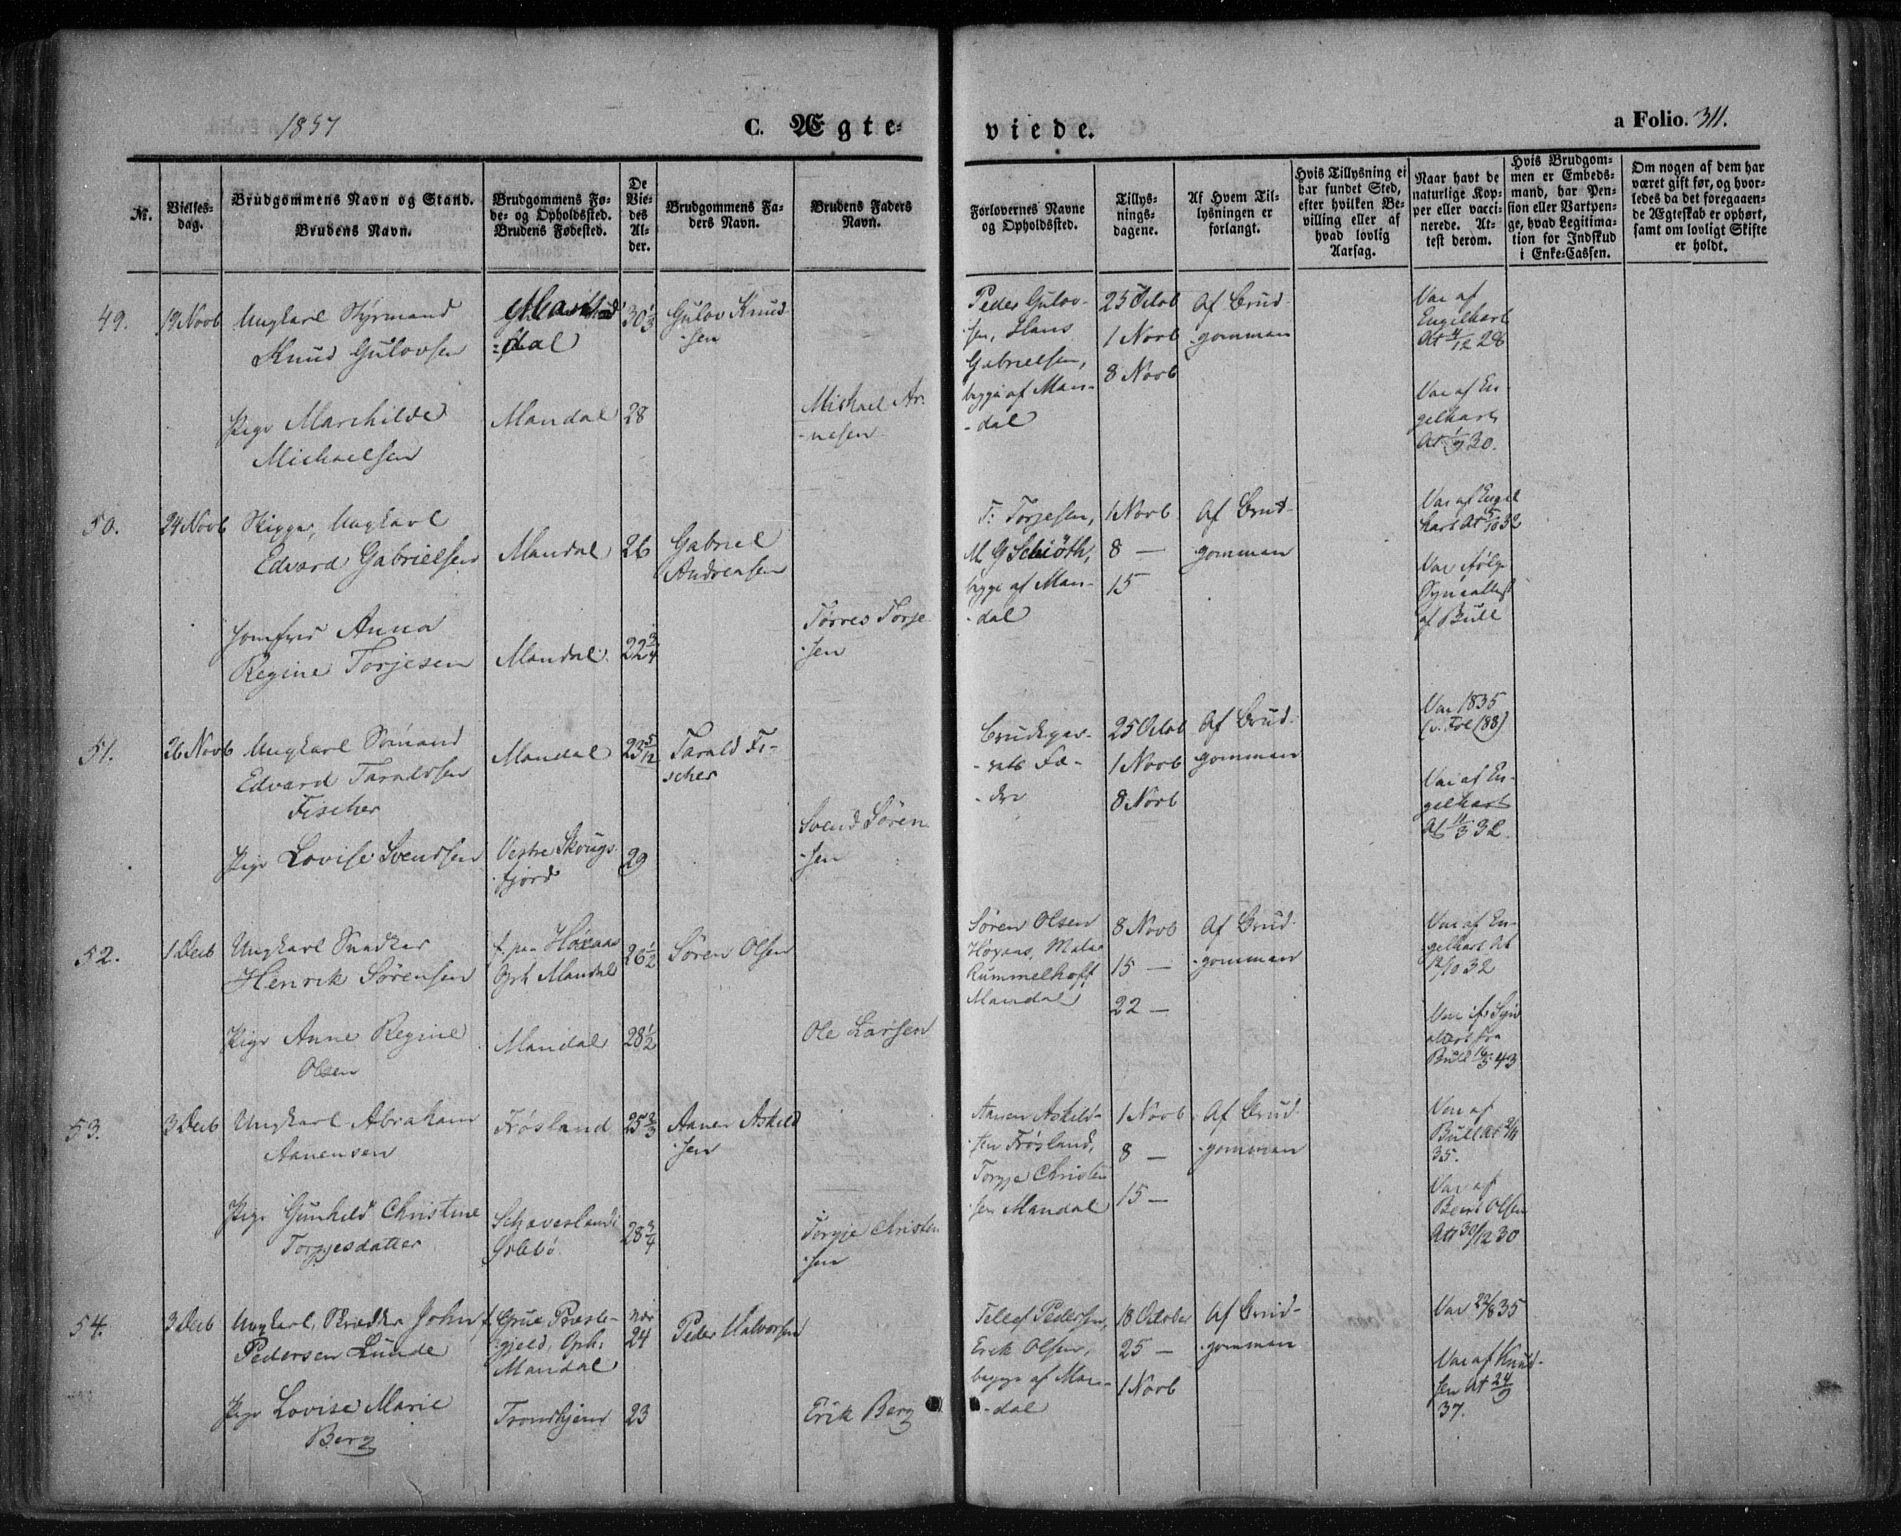 1857
C. Ægte=
viede.
a Folio. 311.
Nr.
Vielses-
dag.
Brudgommens Navn og Stand.
Brudens Navn.
Brudgommens Fø-
de- og Opholdssted.
Brudens Fødested.
De
Vie-
des
Al-
der.
Brudgommens Fa-
ders Navn.
Brudens Faders
Navn.
Forlovernes Navne
og Opholdssted.
Tillys-
nings-
dagene.
Af Hvem Til-
lysningen er
forlangt.
Hvis Tillysning ei
har fundet Sted,
efter hvilken Be-
villing eller af
hvad lovlig
Aarsag.
Naar havt de
naturlige Kop-
per eller vacci-
nerede. At-
test derom.
Hvis Brudgom-
men er Embeds-
mand, har Pen-
sion eller Vartpen-
ge, hvad Legitima-
tion for Indskud
i Enke-Cassen.
Om nogen af dem har
været gift før, og hvor-
ledes da det foregaaen-
de Ægteskab er ophørt,
samt om lovligt Skifte
er holdt.
49.
19 Novb
Ungkarl Styrmand
Knud Gulovsen
dal
30 1/3
Gulov Knud
-sen
Peder Gulov-
sen, Hans
Gabrielsen,
begge af Man-
-dal
25 Octob
1 Novb
8 Novb
Af Brud-
gommen
Vac af
Engelhart
At 4/12 28
Pige Marthilde
Michaelsen
Mandal
28
Michael Ar-
-nesen
Vac af En-
gelhart
At 1/9 30.
50.
24 Novb
Skipper, Ungkarl
Edvard Gabrielsen
Mandal
26
Gabriel
Andreasen
T. Torjesen,
M. G Schiöth,
begge af Man-
-dal
1 Novb
8 —
15
Af Brud-
gommen
Vac af Engel
hart At 5/10 32
Jomfru Anna
Regine Torjesen
Mandal
22 3/4
Tørres Torje
-sen
Vac ifølge
Synsattest
af Bull
51.
26 Novb
Ungkarl Sømand
Edvard Taraldsen
Fischer
Mandal
23 5/12
Tarald Fi-
scher
Brudepar-
-rets Fæ-
-dre
25 Octob
1 Novb
8 Novb
Af Brud-
gommen
Vac 1835
(v. Fol 188)
Pige Lovise Svendsen
Vestre Skougs-
fjord
29
Svend Søren
-sen
Vac af En-
gelhart
At 11/3 32.
52.
1 Decb
Ungkarl Snedker
Henrik Sørensen
f. paa Høxaas
Oph Mandal
26 1/2
Søren Olsen
Søren Olsen
Høxaas, Maler
Rummelhoff
Mandal
8 Novb
15 —
22 —
Af Brud-
gommen
Vac af En-
gelhart At
12/10 32
Pige Anne Regine
Olsen
Mandal
28 1/2
Ole Larsen
Vac if. Syn
attest fra
Bull 16/5 43
53.
3 Decb
Ungkarl Abraham
Aanensen
Frøsland
25 2/3
Aanen Askild
-sen
Aanen Askild-
sen Frøsland,
Torgje Christen
sen Mandal
1 Novb
8 —
15 —
Af Brud-
gommen
Vac af
Bull At 2/11
35.
Pige Gunhild Christine
Torgjesdatter
Øslebø
28 3/4
Torgje Christen
-sen
Vac af
Bent Olsen
Att 30/12 30
54.
3 Decb
Ungkarl, Skrædder John
Pedersen Lunde
f. Grue Præste-
gjeld, Oph.
Mandal
nær
24
Peder Halvorsen
Tellef Pedersen,
Erik Olsen,
begge af Man-
-dal
18 October
25 —
1 Novb
Af Brud-
gommen
Vac 22/8 35
Pige Lovise Marie
Berg
Trondhjem
23
Erik Berg
Vac af Knud-
sen At 24/9
37.